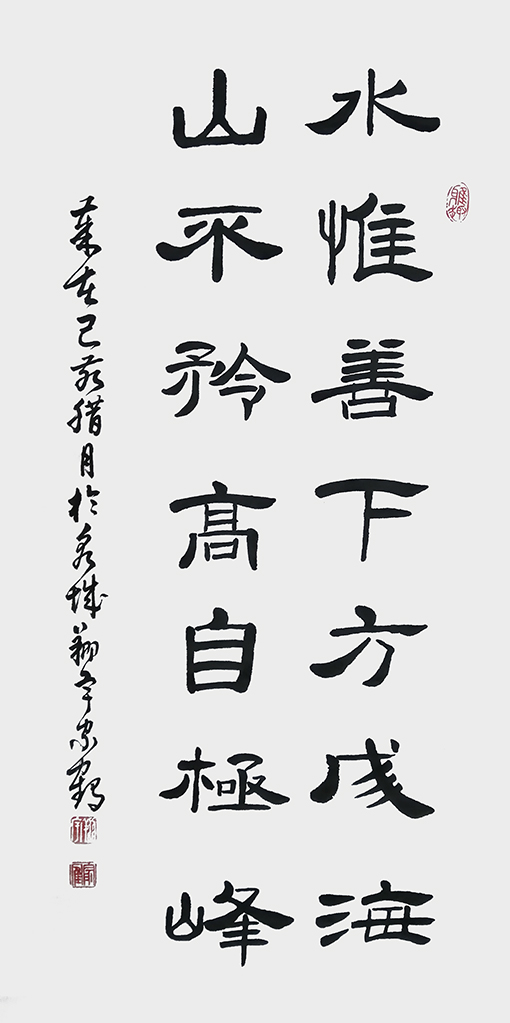 水惟善下方成海
山不矜高自極峰
歲在己亥腊月於泉城